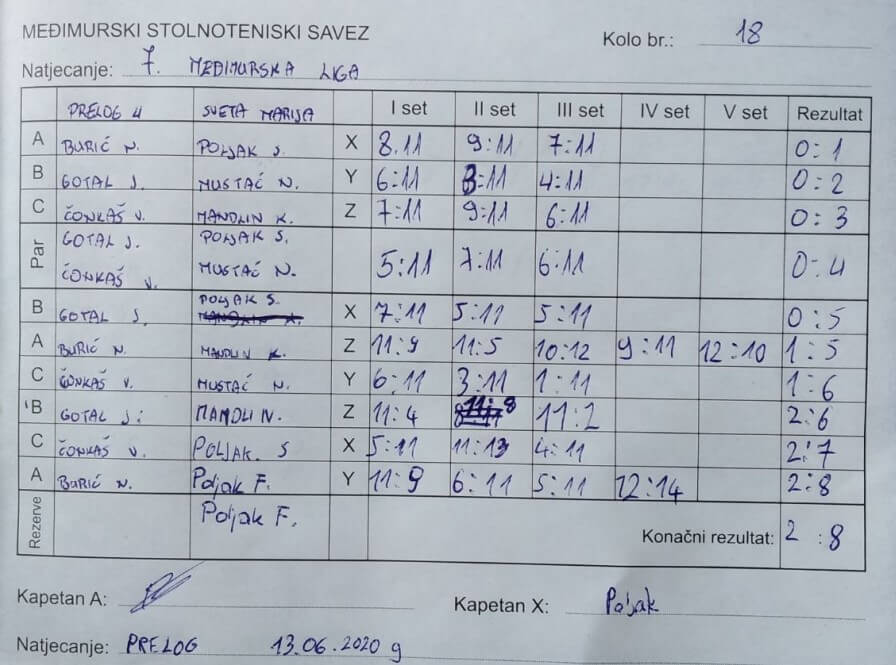 MEĐIMURSKI STOLNOTENISKI SAVEZ
Kolo br.: 18
Natjecanje: 7. MEĐIMURSKA LIGA
PRELOG 4 SVETA MARIJA I set II set III set IV set V set Rezultat
A BURIĆ N. POLJAK S. X 8.11 9:11 7:11 0:1
B GOTAL J. MUSTAĆ N. Y 6:11 8:11 4:11 0:2
C ČONKAŠ V. MANDLIN K. Z 7:11 9:11 6:11 0:3
Par GOTAL J. POLJAK S.
ČONKAŠ V. MUSTAĆ N. 5:11 7:11 6:11 0:4
B GOTAL J. POLJAK S. X 7:11 5:11 5:11 0:5
A BURIĆ N. MANDLIN K. Z 11:9 11:5 10:12 9:11 12:10 1:5
C ČONKAŠ V. MUSTAĆ N. Y 6:11 3:11 1:11 1:6
B GOTAL J. MANDLIN. Z 11:4 11:8 11:2 2:6
C ČONKAŠ V. POLJAK. S X 5:11 11:13 4:11 2:7
A BURIĆ N. Poljak F. Y 11:9 6:11 5:11 12:14 2:8
Rezerve Poljak F. Konačni rezultat: 2:8
Kapetan A:
Kapetan X: Poljak
Natjecanje: PRELOG 13.06.2020 g